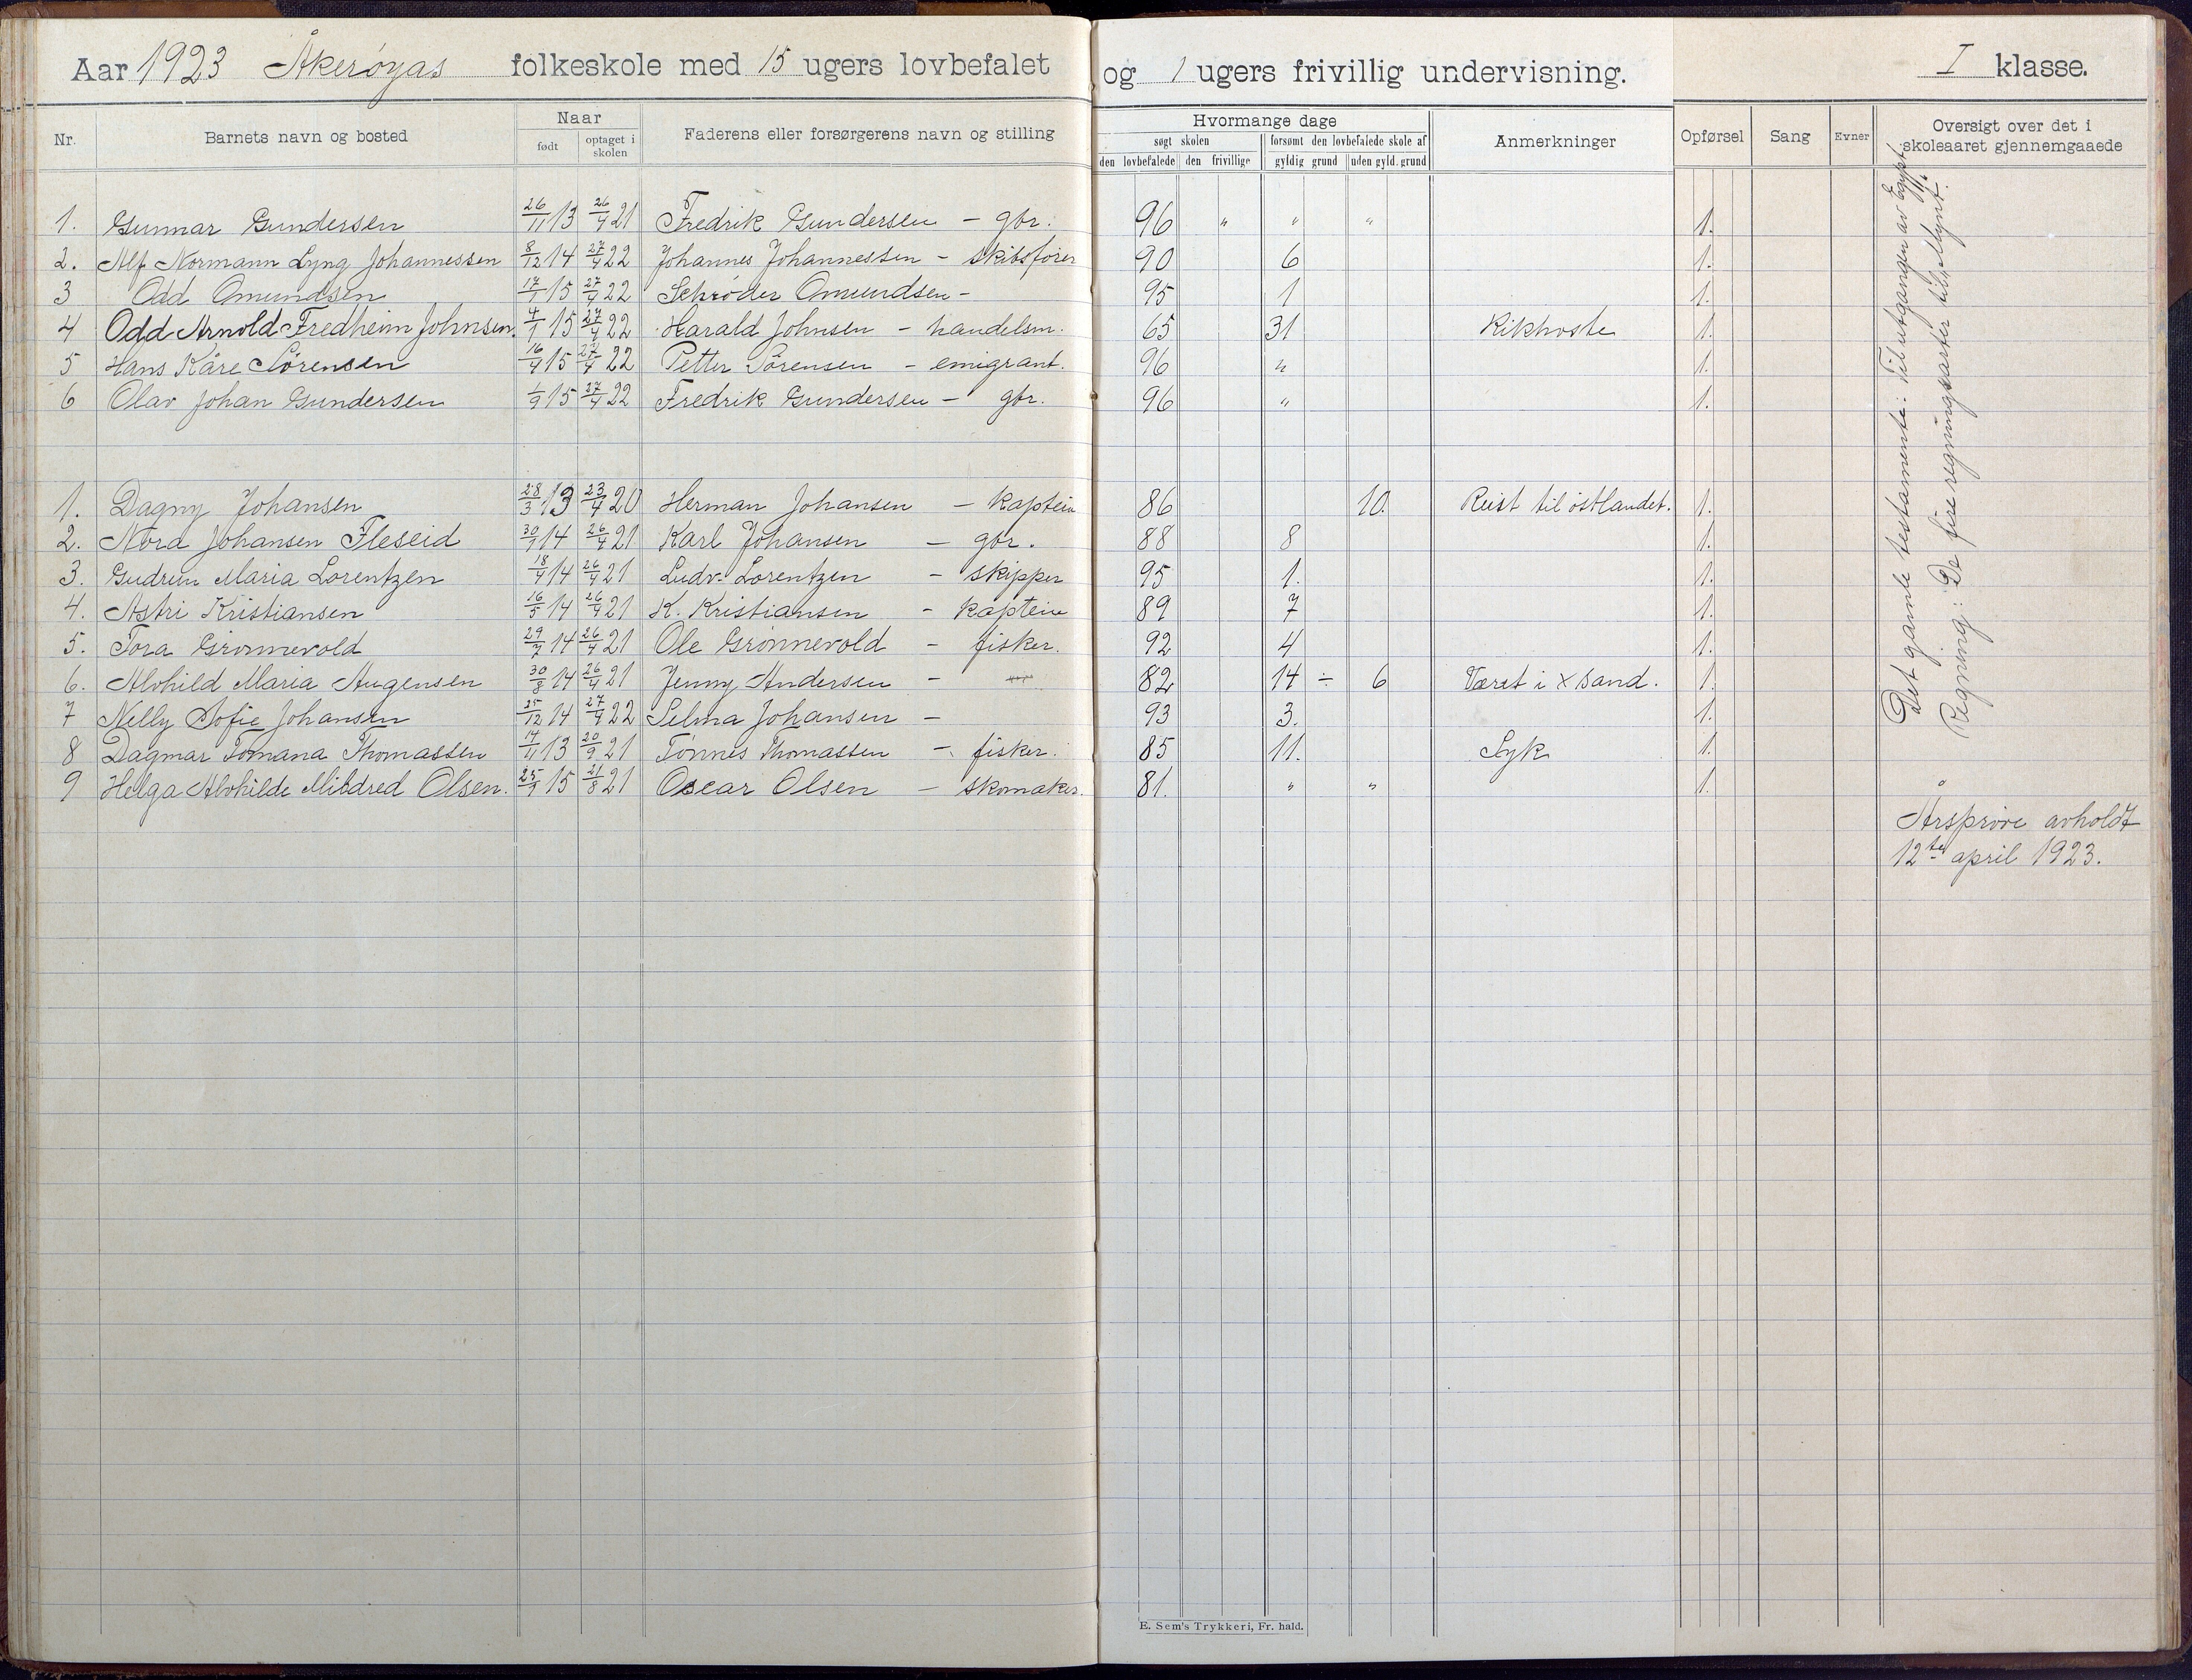 Aar 1923 Åkerøyas folkeskole med 15 ugers lovbefalet og 1 ugers frivillig undervisning. I klasse.
Nr. Barnets navn og bosted Naar født optaget i skolen Faderens eller forsørgerens navn og stilling Hvormange dage søgt skolen den lovbefalede den frivillige forsømt den lovbefalede skole af gyldig grund uden gyld. grund Anmerkninger Opførsel Sang Evner Oversigt over det i skoleaaret gjennemgaaede
1. Gunnar Gundersen 26/11 13 26/4 21 Fredrik Gundersen - gbr. 96 " " " 1.
2. Alf Normann Lyng Johannessen 8/12 14 27/4 22 Johannes Johannessen - skibsfører 90 6 1.
3 Odd Omundsen 17/1 15 27/4 22 Schrøder Omundsen - 95 1 1.
4 Odd Arnold Fredheim Johnsen. 4/1 15 27/4 22 Harald Johnsen - handelsm. 65 31 Kikhoste 1.
5 Hans Kåre Sørensen 16/4 15 27/4 22 Petter Sørensen - emigrant. 96 " 1.
6 Olav Johan Gundersen 1/9 15 27/4 22 Fredrik Gundersen - gbr. 96 " 1.
1. Dagny Johansen 28/3 13 23/4 20 Herman Johansen - kaptein 86 10. Reist til østlandet. 1.
2. Nora Johansen Fleseid 30/1 14 26/4 21 Karl Johansen - gbr. 88 8 1.
3. Gudrun Maria Lorentzen 18/4 14 26/4 21 Ludv. Lorentzen - skipper 95 1. 1.
4. Astri Kristiansen 16/5 14 26/4 21 K. Kristiansen - kaptein 89 7 1.
5. Tora Grønnevold 29/7 14 26/4 21 Ole Grønnevold - fisker. 92 4 1.
6. Alvhild Maria Augensen 30/8 14 26/4 21 Jenny Andersen - 82 14 ÷ 6 Været i Xsand. 1.
7 Nelly Sofie Johansen 25/12 14 27/4 22 Selma Johansen - 93 3. 1.
8 Dagmar Tomana Thomassen 14/11 13 20/9 21 Tønnes Thomassen - fisker. 85 11. Syk 1.
9 Helga Alvhilde Mildred Olsen. 25/1 15 21/8 21 Oscar Olsen - skomaker. 81. " " 1.
Det gamle testamente: Til utgangen av Egypt.
Regning: De fire regningsarter til „Mynt".
Årsprøve avholdt
12te april 1923.
E. Sem's Trykkeri, Fr. hald.